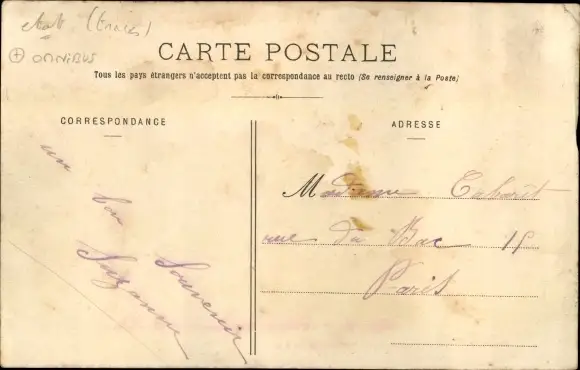 OMNIBUS
CARTE POSTALE
Tous les pays étrangers n'acceptent pas la correspondance au recto (Se renseigner à la Poste)
CORRESPONDANCE
un bon
Souvenir
Suzanne
ADRESSE
Madame
rue du Bac 15
Paris